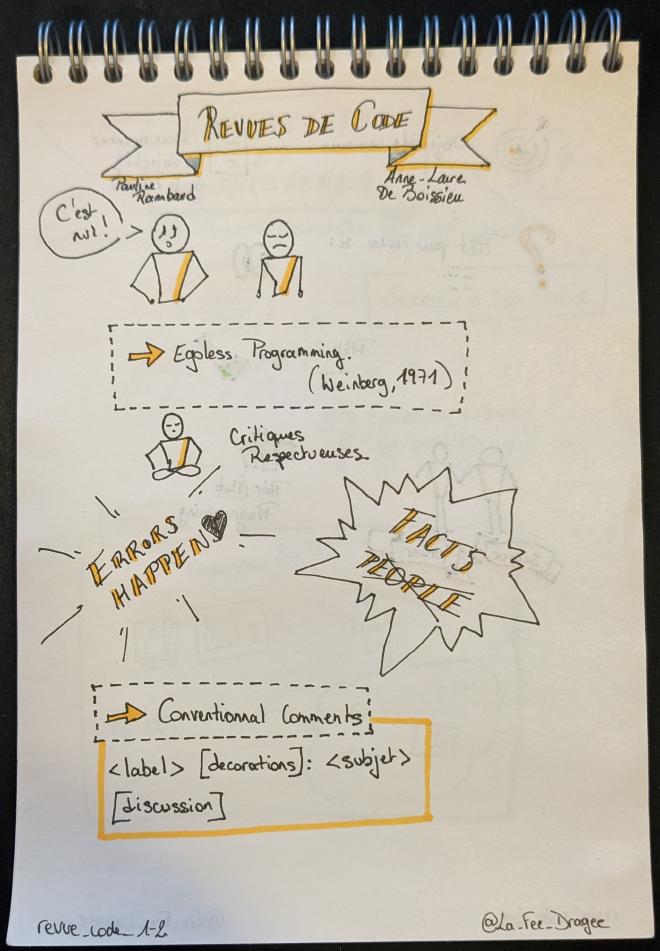 REVUES DE CODE
Pauline
Rambard
Anne-Laure
De Boissieu
C'est
nul!
Egoless Programming.
(Weinberg, 1971)
Critiques
Respectueuses
ERRORS
HAPPEN
FACTS
PEOPLE
Conventionnal Comments
<label> [decorations]: <subjet>
[discussion]
revue_code_1-2
@La_Fee_Dragee